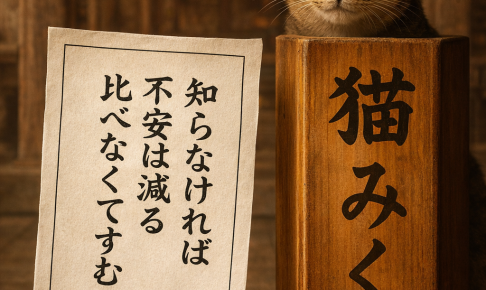 知らなければ
不安は減る
比べなくてすむ
猫みく